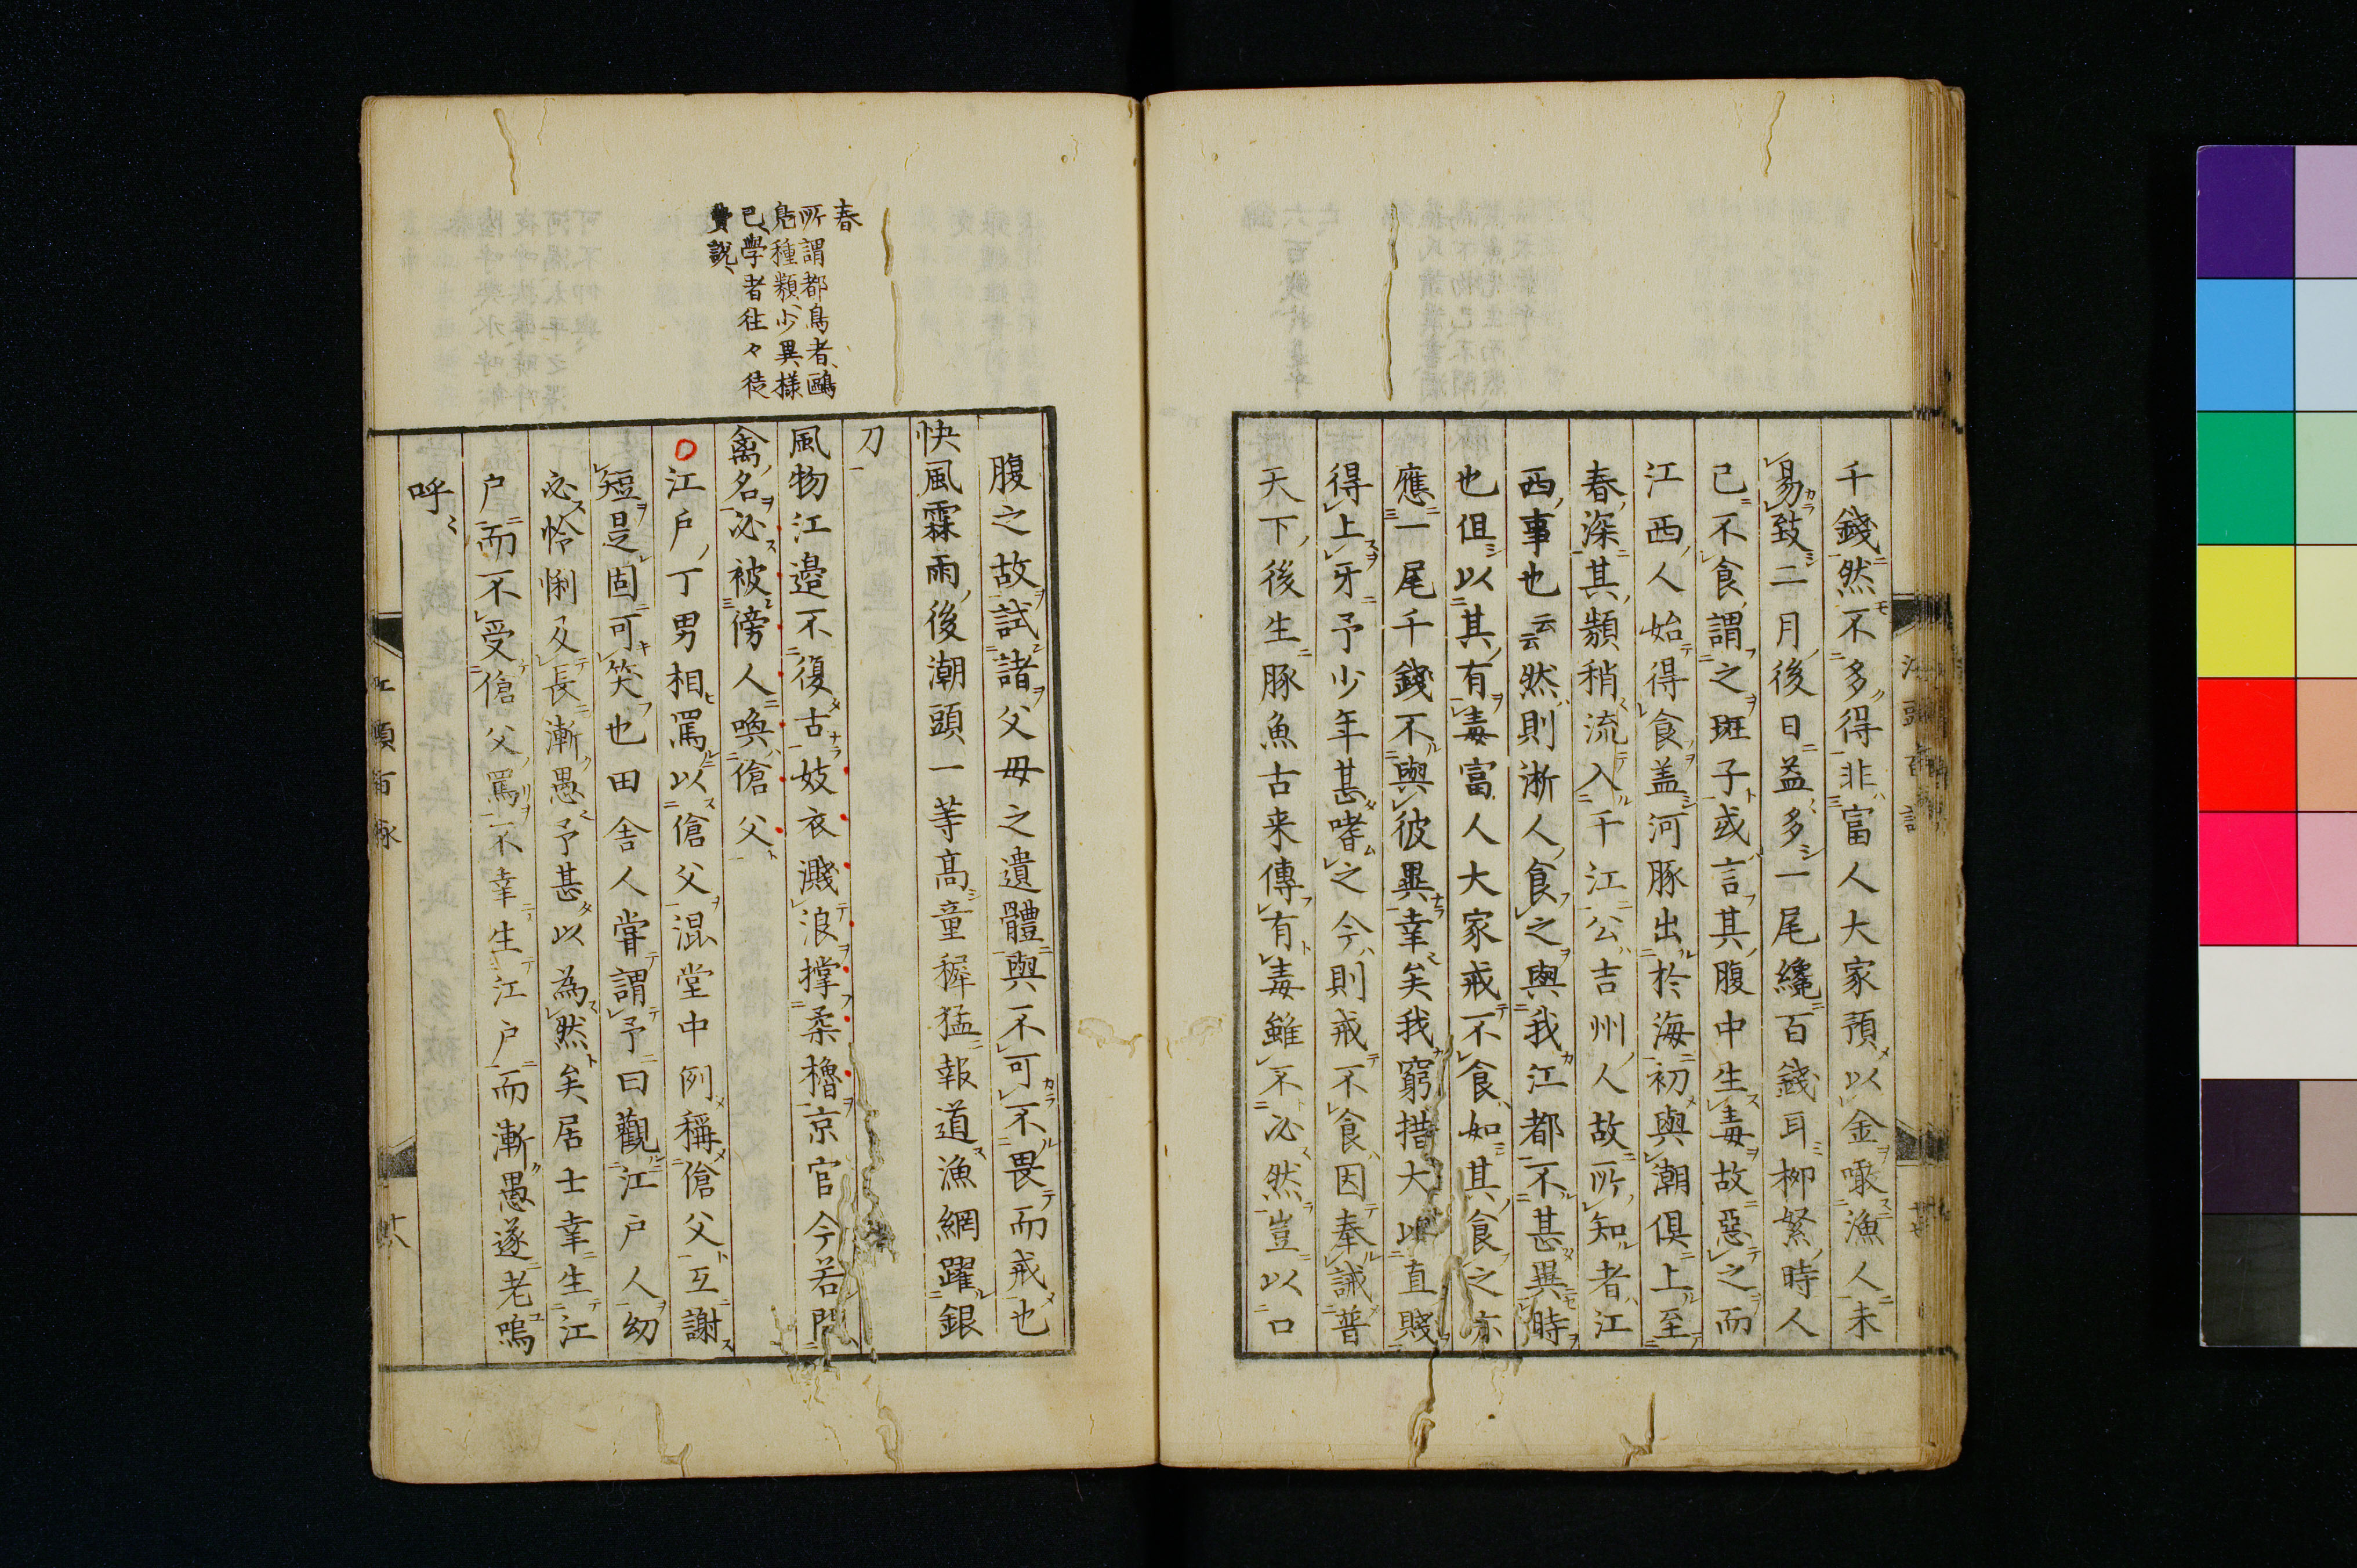 千錢然不多得非富人大家預以金噉漁人未
易致二月後日益多一尾纔百錢耳柳絮時人
已不食謂之斑子或言其腹中生毒故惡之而
江西人始得食盖河豚出於海初與潮俱上至
春深其類稍流入千江公吉州人故所知者江
西事也云云然則浙人食之與我江都不甚異時
也但以其有毒富人大家戒不食如其食之亦
應一尾千錢不與彼異幸矣我窮措大以直賤
得上牙予少年甚嗜之今則戒不食因奉誡普
天下後生豚魚古来傳有毒雖不必然豈以口
腹之故試諸父毋之遺體與不可不畏而戒也
快風霖雨後潮頭一等高童穉猛報道漁網躍銀
刀
春
所謂都鳥者、鷗
鳧種類、少異様
已、學者往々徒
費説、
風物江邉不復古妓衣濺浪撑柔櫓京官今若問
禽名必被傍人喚傖父
江戶丁男相罵以傖父混堂中例稱傖父互謝
短是固可笑也田舎人嘗謂予曰觀江户人幼
必怜悧及長漸愚予甚以為然矣居士幸生江
户而不受傖父罵不幸生江户而漸愚遂老嗚
呼〻